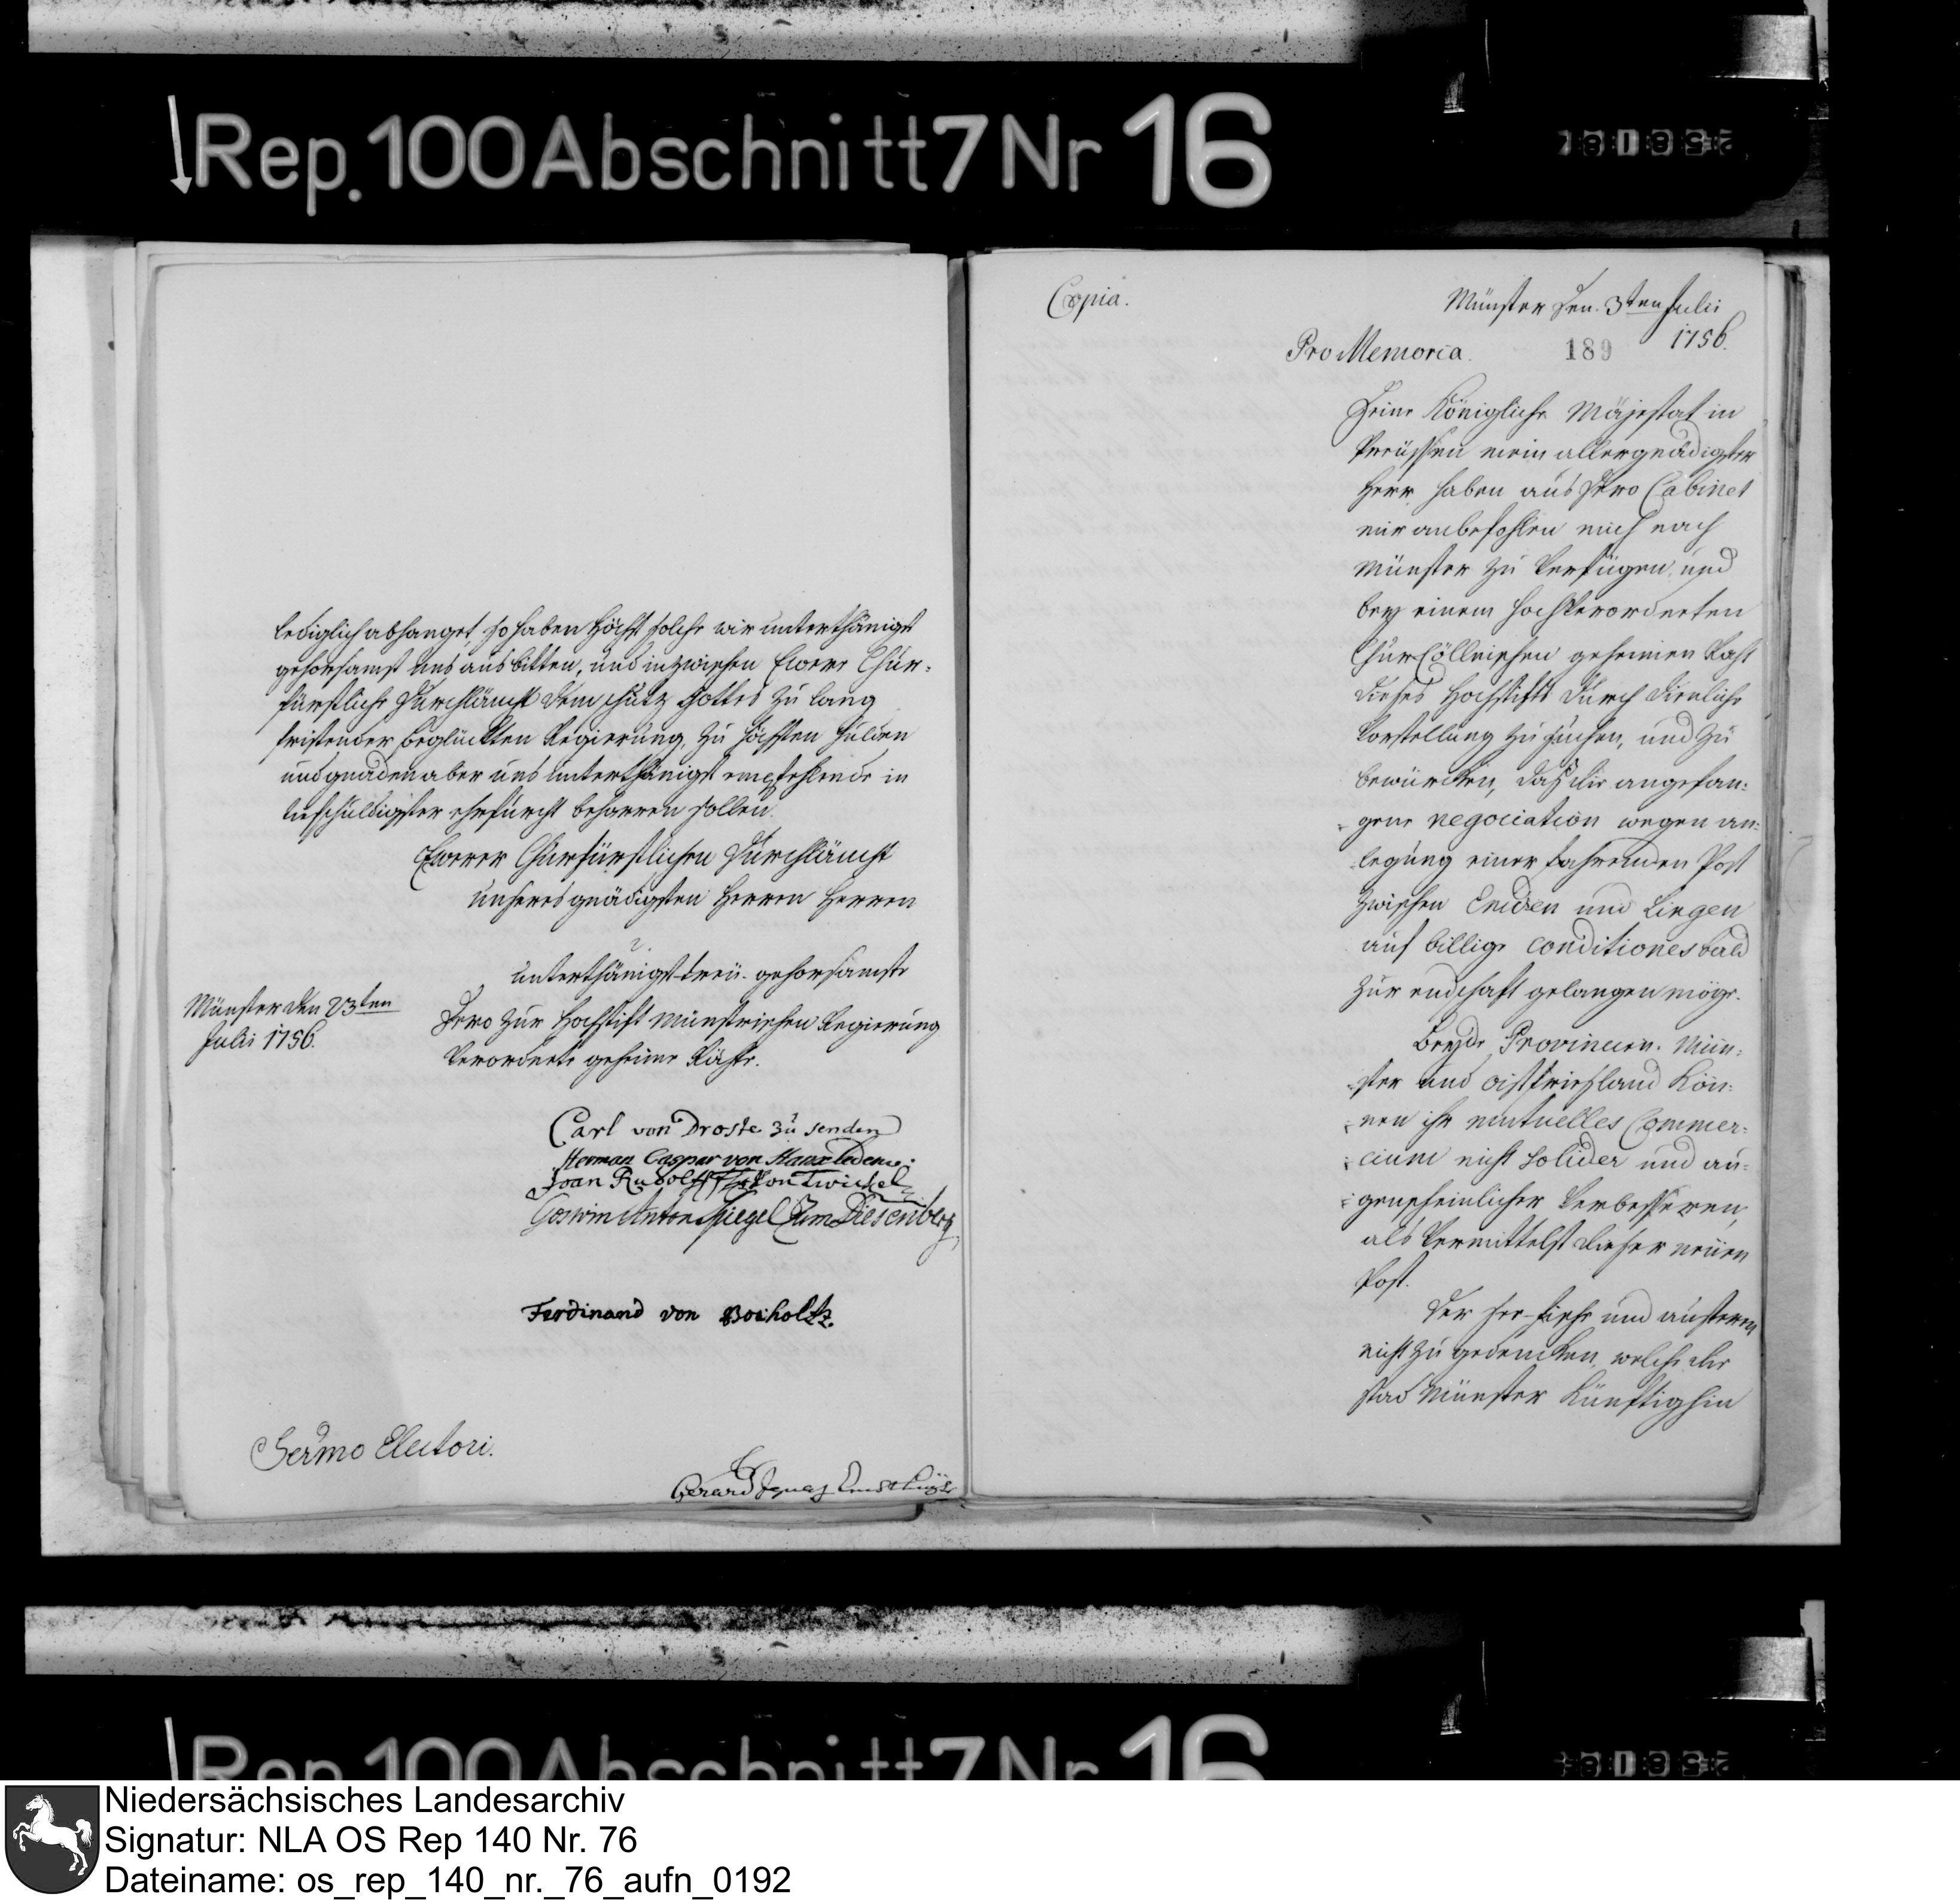 Rep. 100 Abschnitt 7 Nr 16
lediglich abhanget, so haben Höchst solche wir unterthänigst
gehorsamst uns ausbitten, und inzwischen Ewere Chur-
fürstliche Durchläucht dem schutz Gottes zu lang
fristender beglückten Regierung, zu höchsten hulden
und gnaden aber uns unterthänigst empfehlende in
tiefschuldigster ehrfurcht beharren sollen.
Ewerer Churfürstlichen Durchläucht
unseres gnädigsten Herren Herren
unterthänigst-treu-gehorsamste
Münster den 23ten
Julii 1756.
Dero zur Hochstift Münsterischen Regierung
Verordnete geheime Räthe.
Carl von Droste zu senden
Herman Caspar von
Joan Rudolff von Twickel
Goswin Anton Spiegel Zum Diesenberg
Ferdinand von Bocholtz.
Sermo Electori.
Gerard Ignaz
Copia.
Münster den 3ten Julii
1756.
Pro Memoria.
189
Seine Königliche Mäjestat in
Preüssen mein allergnädigster
Herr haben aus Dero Cabinet
mir anbefohlen mich nach
Münster zu Verfügen, und
bey einem hochVerordneten
ChurCöllnischen geheimen Raht
dieses Hochstifts durch dienliche
Vorstellung zu suchen, und zu
bewürcken, daß die angefan-
gene negociation wegen an-
legung einer fahrenden Post
zwischen Emden und Lingen
auf billige conditiones bald
zur endschaft gelangen möge.
Beyde Provincien Mün-
ster und Oistfriesland Kön-
nen ihr mutuelles Commer-
cium nicht solider und au-
genscheinlicher Verbesseren,
als Vermittelst dieser neüen
Post.
Der see-fische und austeren
nicht zu gedencken, welche die
stad Münster Künftighin
Rep. 100 Abschnitt 7 Nr 16
Niedersächsisches Landesarchiv
Signatur: NLA OS Rep 140 Nr. 76
Dateiname: os_rep_140_nr._76_aufn_0192